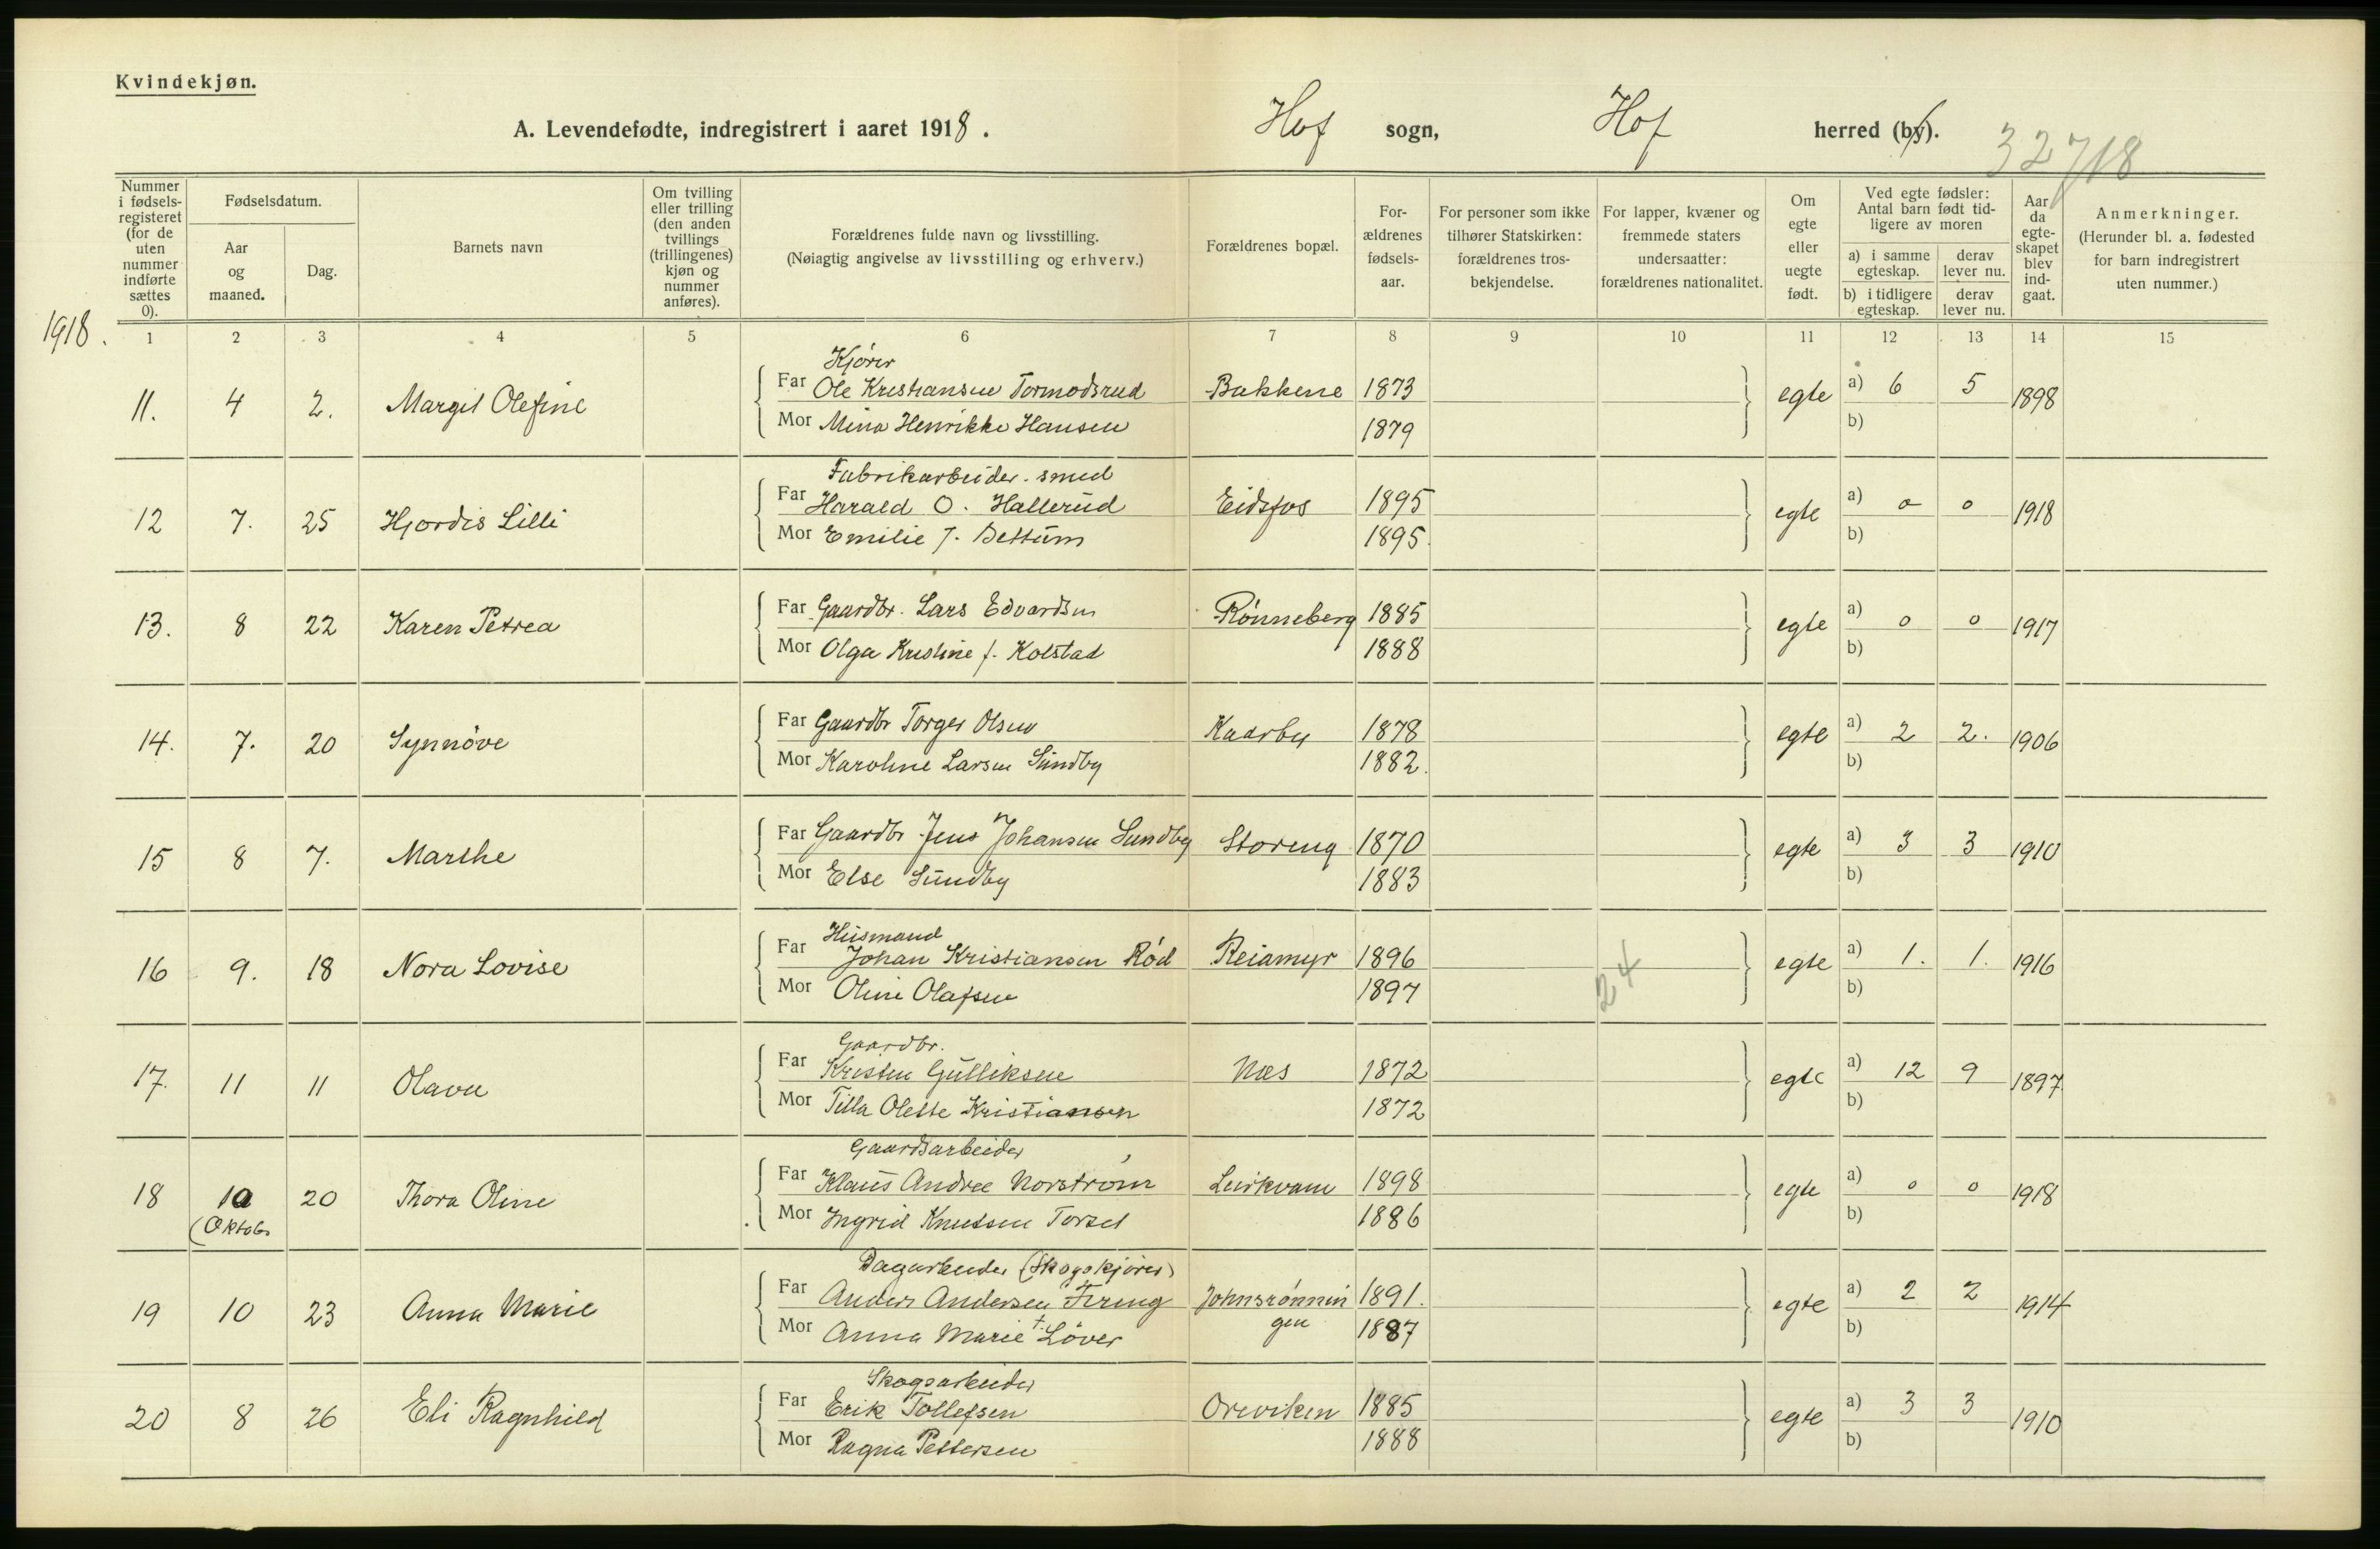 Kvindekjøn.
A. Levendefødte, indregistrert i aaret 1918. Hof sogn, Hof herred (by).
32718
Nummer i fødsels-registeret (for de uten nummer indførte sættes 0).
Fødselsdatum.
Aar og maaned.
Dag.
Barnets navn
Om tvilling eller trilling (den anden tvillings (trillingenes) kjøn og nummer anføres).
Forældrenes fulde navn og livsstilling.
(Nøiagtig angivelse av livsstilling og erhverv.)
Forældrenes bopæl.
For-ældrenes fødsels-aar.
For personer som ikke tilhører Statskirken: forældrenes tros-bekjendelse.
For lapper, kvæner og fremmede staters undersaatter: forældrenes nationalitet.
Om egte eller uegte født.
Ved egte fødsler: Antal barn født tid-ligere av moren
a) i samme egteskap. derav lever nu.
b) i tidligere egteskap. derav lever nu.
Aar da egte-skapet blev ind-gaat.
Anmerkninger.
(Herunder bl. a. fødested for barn indregistrert uten nummer.)
1918.
1 2 3 4 5 6 7 8 9 10 11 12 13 14 15
Kjører
11. 4 2. Margit Olefine Far Ole Kristiansen Tormodsrud Bakkene 1873 egte a) 6 5 1898
Mor Mina Henrikke Hansen 1879 b)
Fabrikarbeider. smed
12 7. 25 Hjordis Lilli Far Harald O. Hallerud Eidsfos 1895 egte a) 0 0 1918
Mor Emilie f. Bettum 1895. b)
13. 8 22 Karen Petrea Far Gaardbr. Lars Edvardsen Rønneberg 1885 egte a) 0 0 1917
Mor Olga Kristine f. Kolstad 1888 b)
14. 7. 20 Synnøve Far Gaardbr Torger Olsen Kaarby 1878 egte a) 2 2. 1906
Mor Karoline Larsen Sundby 1882. b)
15 8 7. Marthe Far Gaardbr Jens Johansen Sundby Storeng 1870 egte a) 3 3 1910
Mor Else Sundby 1883 b)
Husmand
16 9. 18 Nora Lovise Far Johan Kristiansen Rød Reiamyr 1896 egte a) 1. 1. 1916
Mor Oline Olafsen 1897 24 b)
Gaardbr.
17. 11 11 Olava Far Kristen Gulliksen Næs 1872 egte a) 12 9 1897
Mor Tilla Olette Kristiansen 1872 b)
Gaardsarbeider
18 10 20 Thora Oline Far Klaus Andree Norstrøm Leirkvam 1898 egte a) 0 0 1918
(Oktob. Mor Ingrid Knutsen Torset 1886 b)
Dagarbeider (Skogskjører)
19 10 23 Anna Marie Far Anders Andersen Firing Johnsrønnin 1891. egte a) 2 2 1914
Mor Anna Marie f. Løver gen 1887 b)
Skogsarbeider
20 8 26 Eli Ragnhild Far Erik Tollefsen Oreviken 1885 egte a) 3 3 1910
Mor Ragna Pettersen 1888 b)